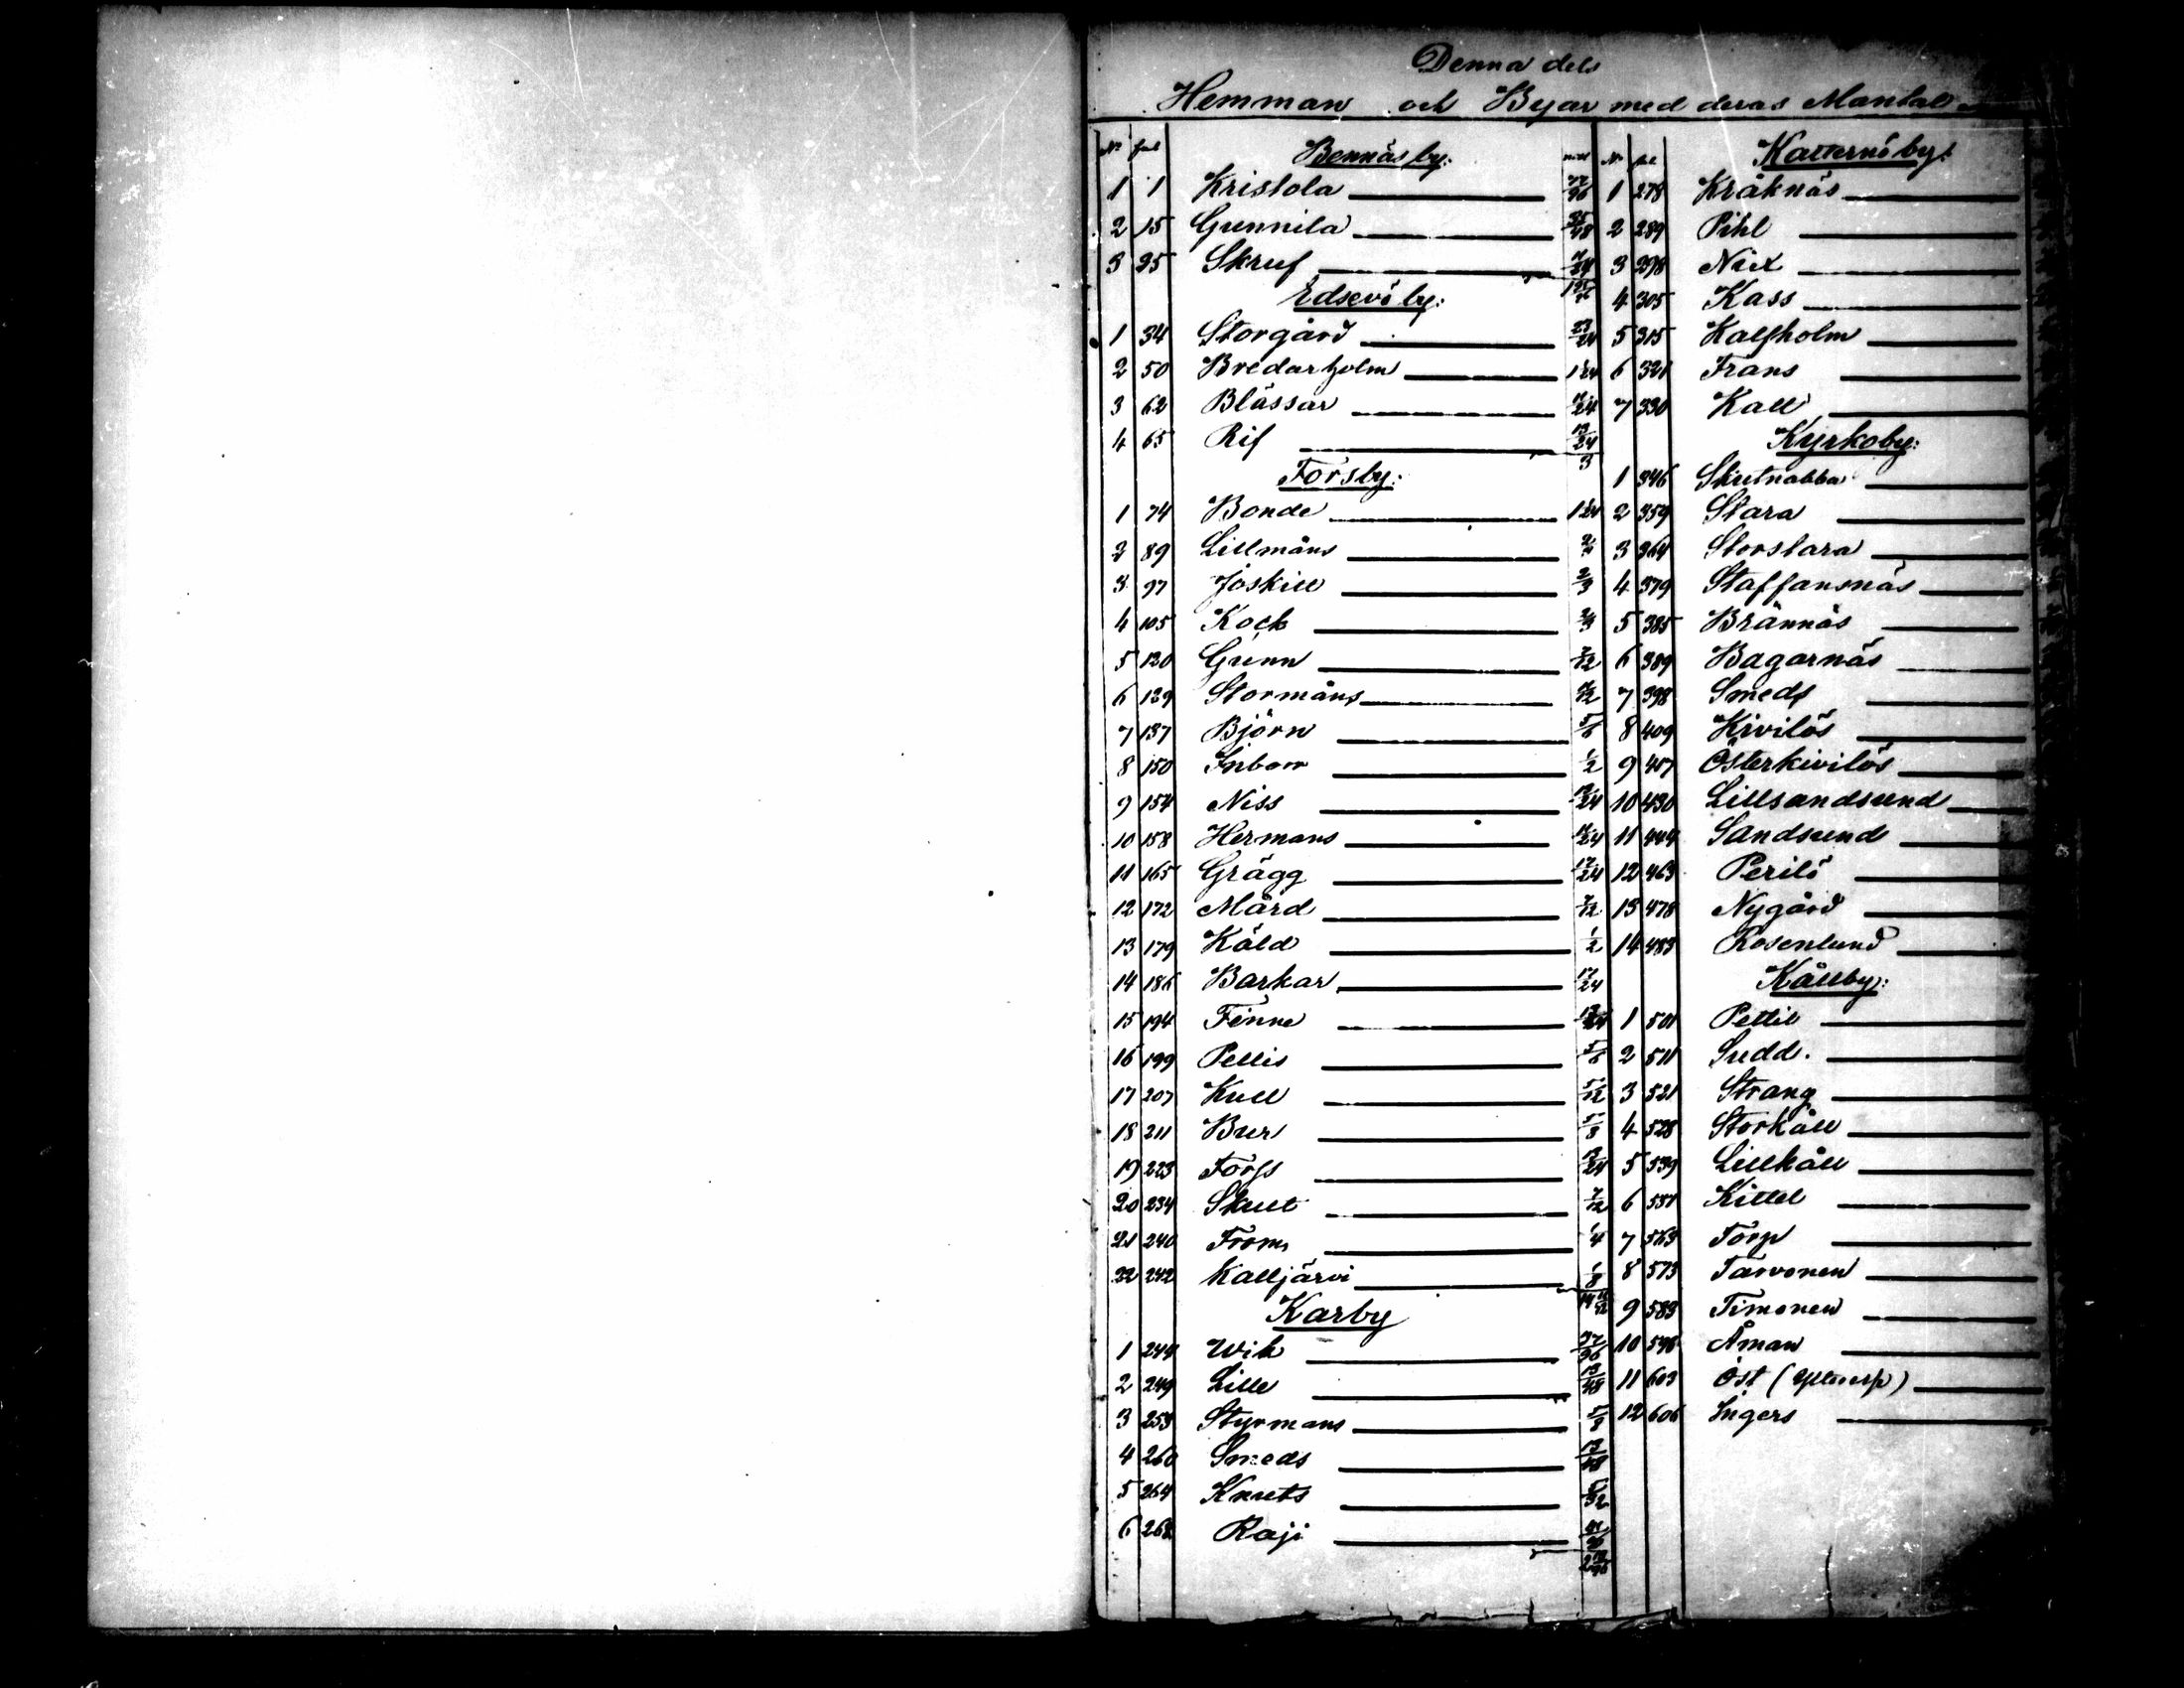 Denna dels
Hemman och Byar med deras Mantal
No fol Bennäsby: mtl
1 1 Kristola
2 15 Gunnila 35/48
3 25 Skruf
Edsevöby:
1 34 Storgård 23/24
2 50 Bredarholm 1 1/24
3 62 Blässar
4 65 Rif
3
Forsby:
1 74 Bonde 1 1/24
2 89 Lillmåns
3 97 Joskill 2/3
4 105 Kock 2/3
5 120 Gunn 7/12
6 129 Stormåns
7 137 Björn 5/6
8 150 Inborr 1/2
9 154 Niss
10 158 Hermans
11 165 Grägg 17/24
12 172 Mård 7/12
13 179 Käld 1/2
14 186 Barkar 17/24
15 194 Finne
16 199 Pellis 5/6
17 207 Kull 5/12
18 211 Bur 5/8
19 223 Forss
20 234 Skutt 7/12
21 240 Froms 1/4
22 242 Kalljärvi 1/8
Karby
1 244 Wik 37/96
2 249 Lille 13/48
3 253 Styrmans
4 260 Smeds 13/48
5 264 Knuts 5/32
6 268 Raji
No fol Katternöby:
1 278 Kråknäs
2 289 Pihl
3 298 Nix
4 305 Kass
5 315 Kalfholm
6 321 Frans
7 330 Kall
Kyrkoby:
1 346 Skutnabba
2 359 Stara
3 364 Storstara
4 379 Staffansnäs
5 385 Brännäs
6 389 Bagarnäs
7 398 Smeds
8 409 Kivilös
9 417 Österkivilös
10 430 Lillsandsund
11 444 Sandsund
12 463 Perilö
13 478 Nygård
14 483 Rosenlund
Kållby:
1 501 Pettil
2 511 Sudd.
3 521 Strang
4 528 Storkåll
5 539 Lillkåll
6 551 Kittel
7 563 Torp
8 573 Tarvonen
9 583 Timonen
10 596 Åman
11 603 Öst (Ytteresse)
12 606 Ingers